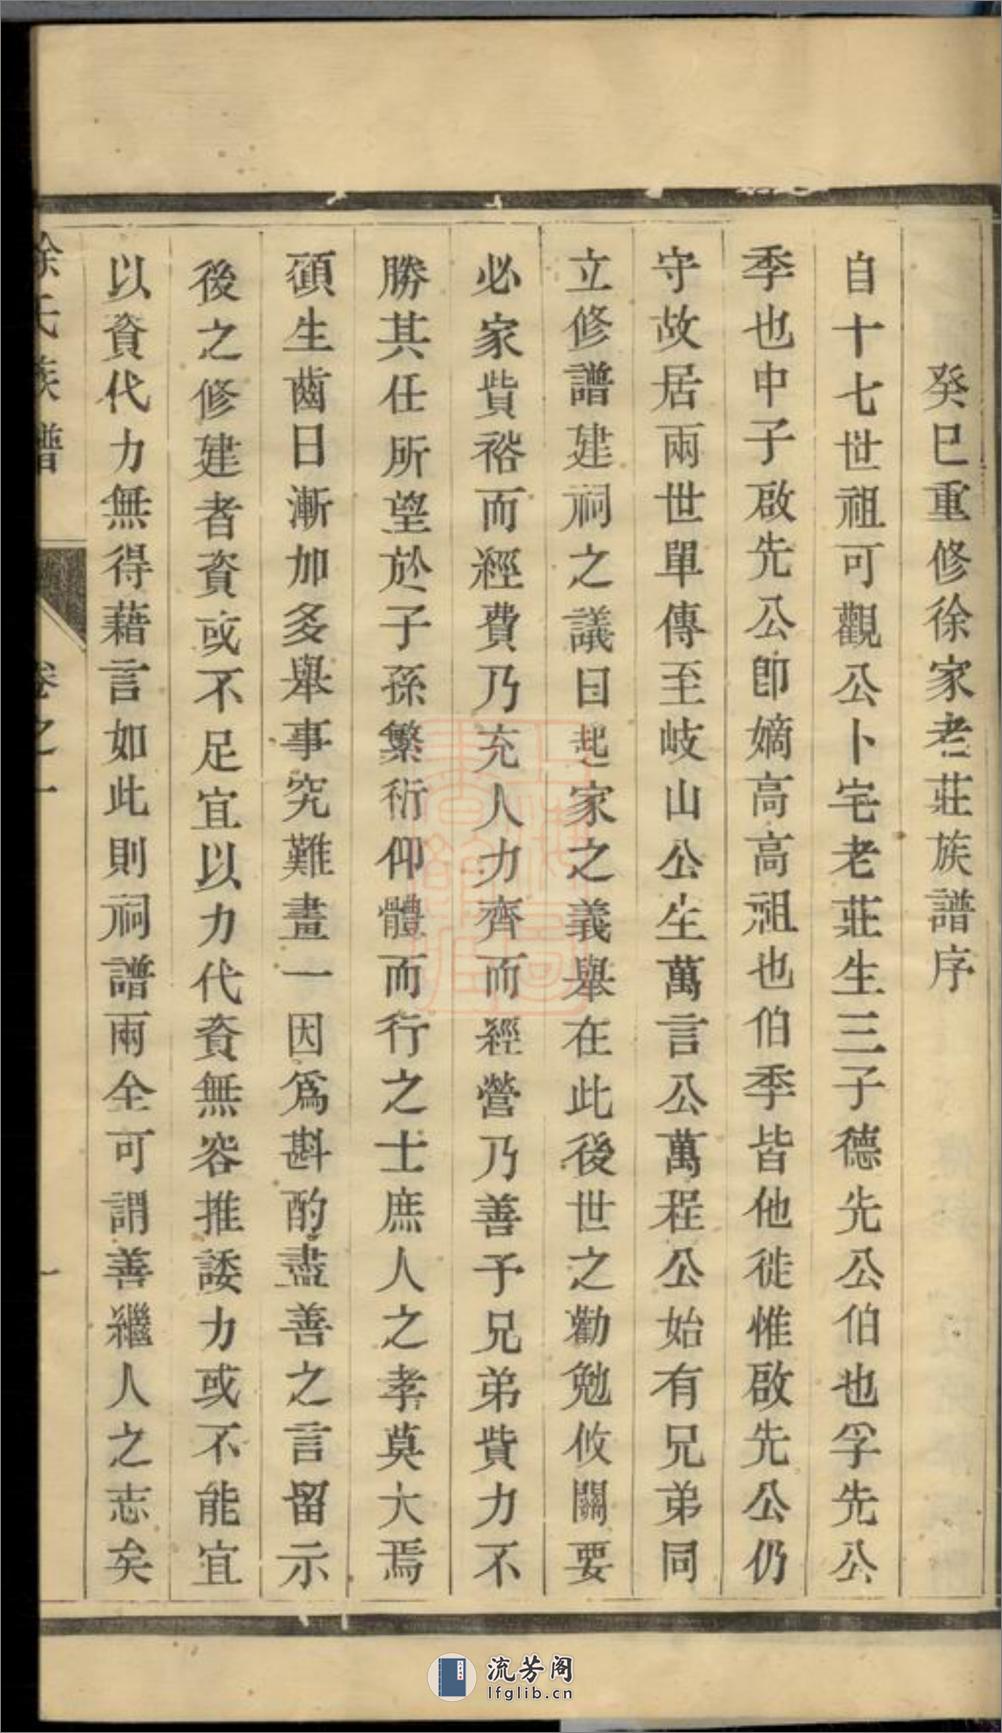 癸巳重修徐家老莊族譜序
自十七世祖可觀公卜宅老莊生三子德先公伯也孚先公
季也中子啟先公卽嫡高高祖也伯季皆他徙惟啟先公仍
守故居兩世單傳至岐山公生萬言公萬程公始有兄弟同
立修譜建祠之議曰起家之義舉在此後世之勸勉攸關要
必家貲裕而經費乃充人力齊而經營乃善予兄弟貲力不
勝其任所望於子孫繁衍仰體而行之士庶人之孝莫大焉
顧生齒日漸加多舉事究難畫一因爲斟酌盡善之言留示
後之修建者資或不足宜以力代資無容推諉力或不能宜
以資代力無得藉言如此則祠譜兩全可謂善繼人之志矣
徐氏族譜
卷之一
一
流芳阁
lfglib.cn